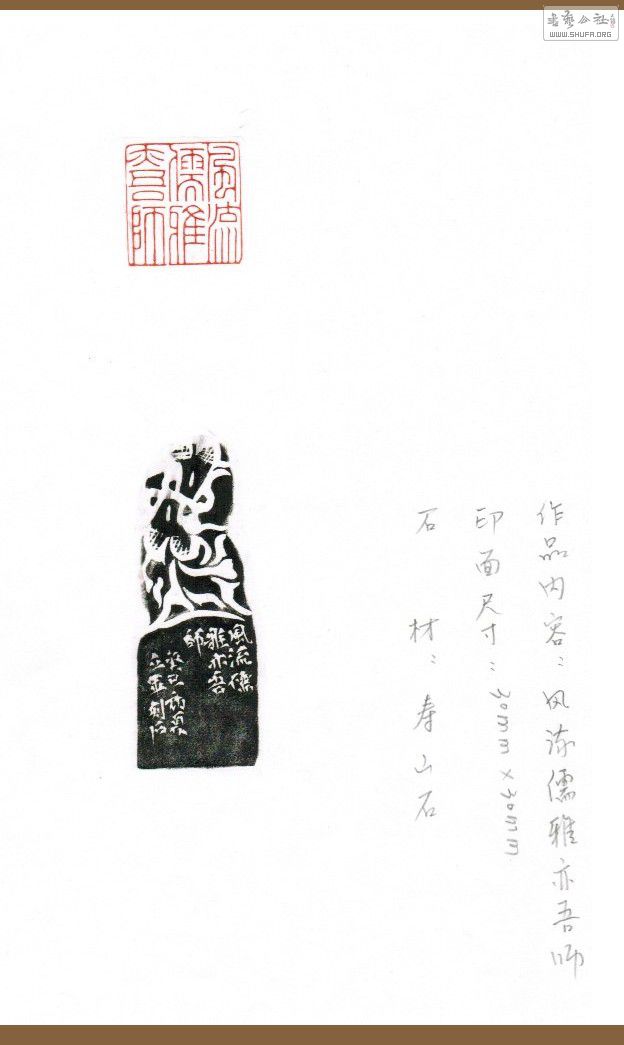 書藝公社
WWW.SHUFA.ORG
風流
儒雅
亦吾師
風流儒
雅亦吾
師
癸巳
刻石
作品内容：风流儒雅亦吾师
印面尺寸：30mm×30mm
石 材：寿山石